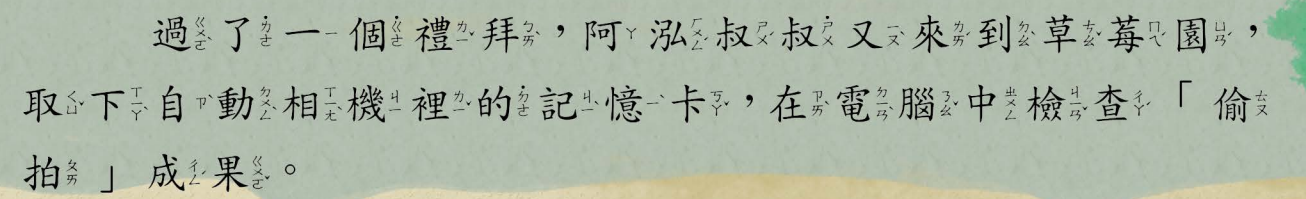 過了一個禮拜，阿泓叔叔又來到草莓園，
取下自動相機裡的記憶卡，在電腦中檢查「偷
拍」成果。